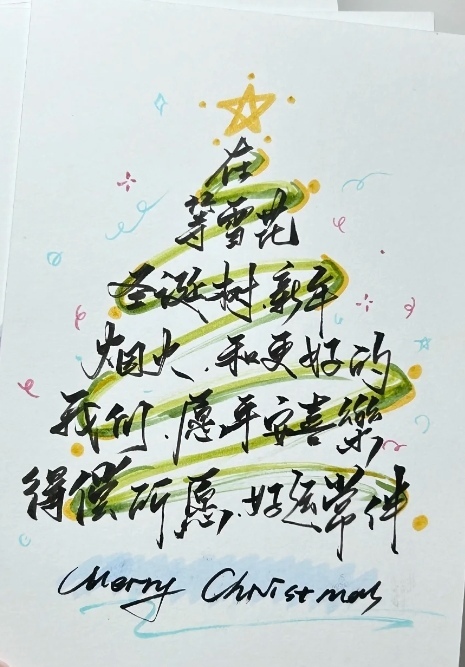 在
等雪花
圣诞树.新年
烟火.和更好的
我们.愿平安喜樂
得偿所愿.好运常伴
Merry Christmas